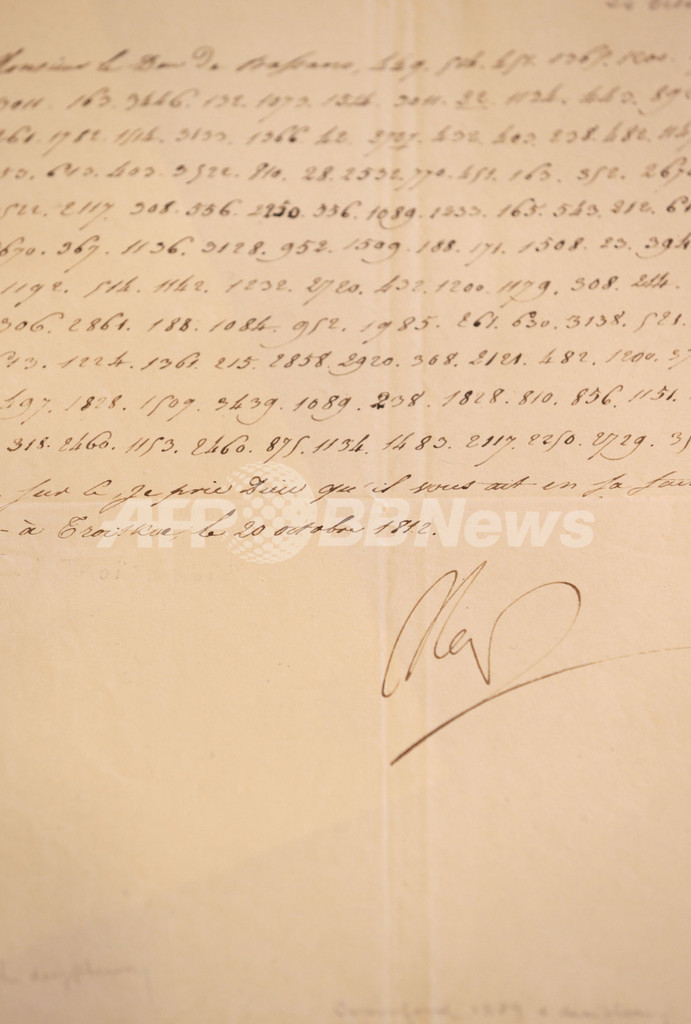 Monsieur le Duc de Bassano, 449. 514. 451. 1365. 1200.
3011. 163. 3446. 132. 1073. 1324. 3011. 22. 1134. 443.
261. 1782. 1514. 3133. 1366. 42. 2727. 432. 403. 238. 482.
53. 613. 403. 3522. 810. 28. 2532. 770. 451. 163. 352. 2670
522. 2117. 308. 556. 2250. 356. 1089. 1233. 165. 543. 212. 61
670. 367. 1136. 3128. 952. 1599. 188. 171. 1508. 23. 394
1192. 514. 1142. 1232. 2720. 432. 1200. 1179. 308. 214.
306. 2861. 188. 1084. 952. 1985. 261. 630. 3138. 521.
613. 1224. 1361. 215. 2858. 2920. 308. 2121. 482. 1200. 37
497. 1828. 1509. 3439. 1089. 238. 1828. 810. 836. 1151.
318. 2460. 1153. 2460. 875. 1134. 1483. 2117. 2250. 2729. 35
sur ce je prie Dieu qu'il vous ait en sa
à Troiskoe, le 20 octobre 1812.
Nap
AFPBBNews